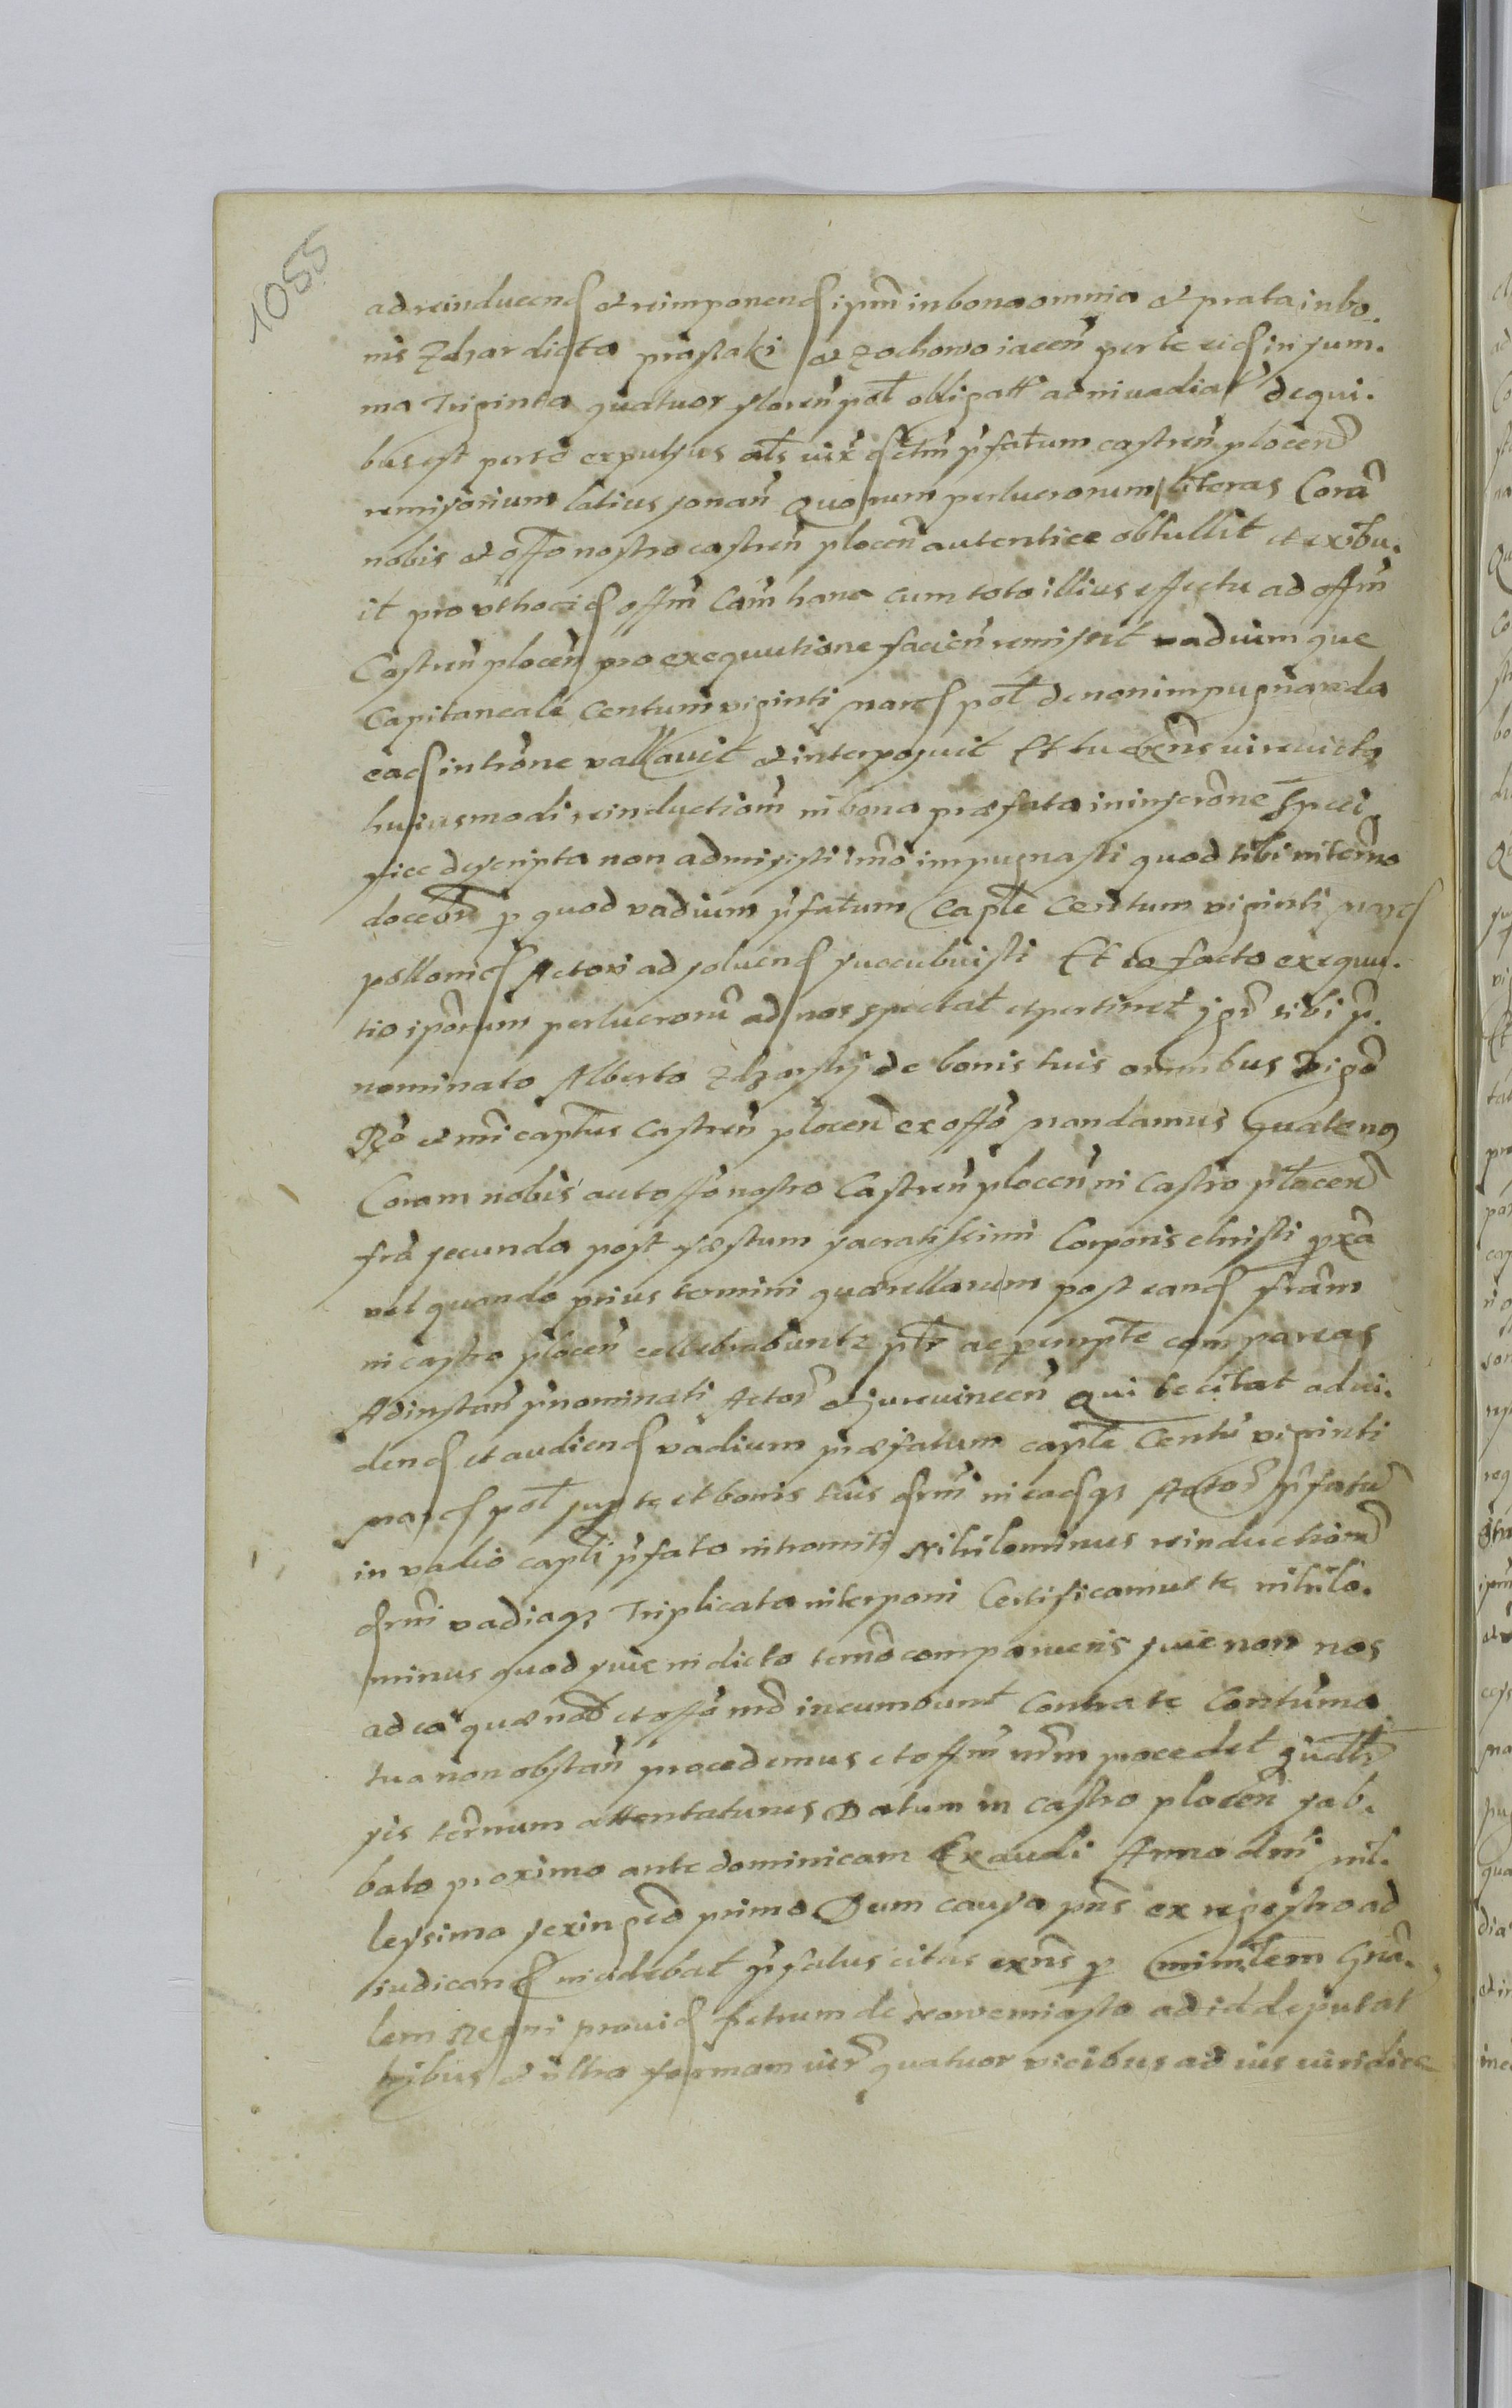 1055
ad reinducend et reimponend ipm in bona omnia et prata in bo.
nis Zdzar dicta prostaki et zochowo iacen per te eid in sum.
ma Triginta quatuor floren pol obligatt ad nivadiat de qui.
bus est per te expulsus als iux dctm pfatum castren plocen
remissorium latius sonan Quorum perlucrorum literas Cora
nobis et offo nostro castren plocen autentice obtullit et exibu.
it prout hoc id offm Cam hanc cum toto illius effectu ad offm
Castren plocen pro exequutione facien remisit vadiumque
Capitaneale Centum viginti marc pol de non impugnanda
ead introne vallavit et interposuit Et tu exns iurevicta
huiusmodi reinductiom in bona præfata in inscrone speci
fice descripta non admisisti imo impugnasti quod tibi in termo
docebr p quod vadium pfatum Caple Centum viginti marc
pollonic Actori ad solvend succubuisti Et eo facto exequu.
tio ipsorum perlucroru ad nos spectat et pertinet igr tibi p.
nominato Alberto Zdzarsky de bonis tuis omnibus vigo
Ro et nri captus Castren plocen ex offo mandamus quatenus
Coram nobis aut offo nostro Castren plocen in Castro plocen
fra secunda post fæstum sacratissimi Corporis christi pxa
vel quando prius termini quærellarum post eand fram
in castro plocen cellebrabuntr ptr ac perempte compareas
Ad instan pnominati Actor et iurevincen Qui te citat ad vi.
dend et audiend vadium præfatum caple Centu viginti
marc pol sup te et bonis tuis drni in eadqz Actor pfatu
in vadio capli pfato intromitti Nihilominus reinductiom
drni vadiaqz Triplicata interponi Certificamus te nihilo.
minus quod sive in dicto termo comparueris sive non nos
ad ea quæ nob et offo nro incumbunt Contra te Contuma
tua non obstan procedemus et offm nrm procedet gvatr
sis ternum attentaturus Datum in Castro plocen sab.
bato proximo ante dominicam Exaudi Anno dni mil.
lesimo sexingeto primo Dum causa pns ex regestro ad
iudicand incidebat pfatus citas exns p ministem Gna.
lem Regni provid petrum de Nowemiasto ad id deputat
tribus et ultra formam iur quatuor vicibus ad ius iuridice